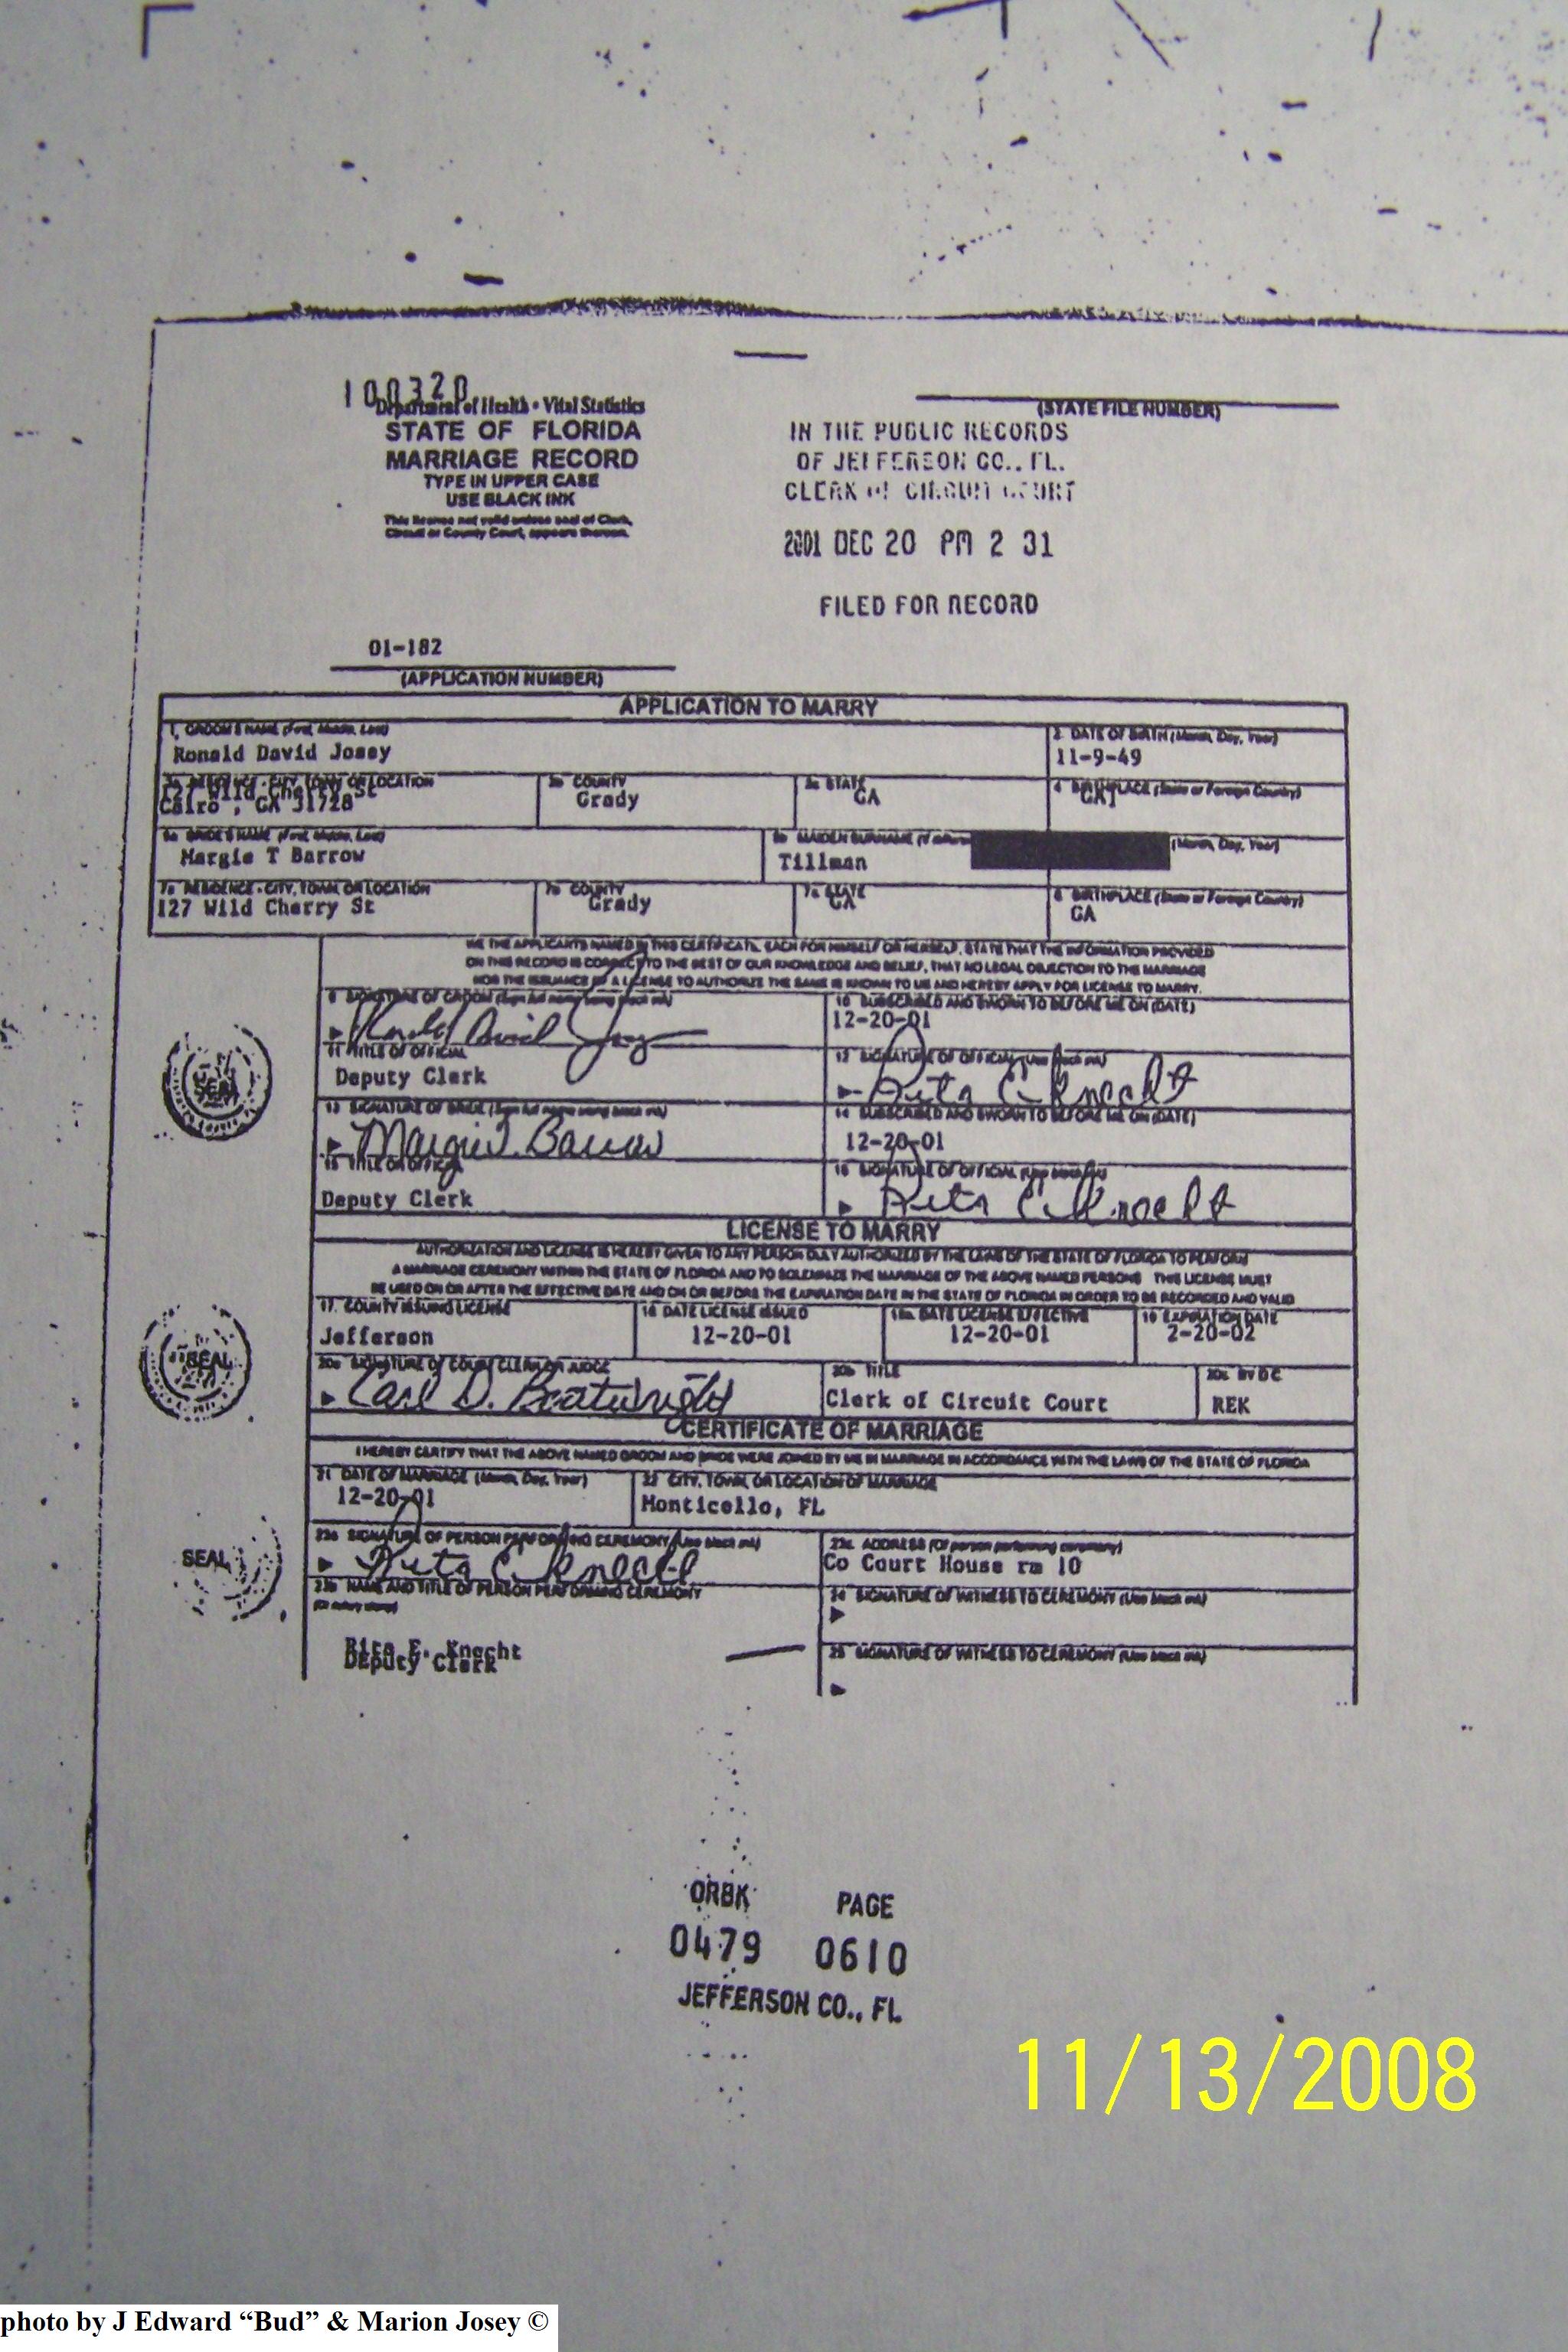 100320
Department of Health • Vital Statistics
STATE OF FLORIDA
MARRIAGE RECORD
TYPE IN UPPER CASE
USE BLACK INK
This license not valid unless seal of Clerk,
Circuit or County Court, appears thereon.
(STATE FILE NUMBER)
IN THE PUBLIC RECORDS
OF JEFFERSON CO., FL.
CLERK OF CIRCUIT COURT
2001 DEC 20 PM 2 31
FILED FOR RECORD
01-182
(APPLICATION NUMBER)
APPLICATION TO MARRY
1. GROOM'S NAME (First, Middle, Last)
Ronald David Josey
2. DATE OF BIRTH (Month, Day, Year)
11-9-49
3a RESIDENCE - CITY, TOWN, OR LOCATION
127 Wild Cherry St
Cairo , GA 31728
3b COUNTY
Grady
3c STATE
GA
4 BIRTHPLACE (State or Foreign Country)
GA
5a BRIDE'S NAME (First, Middle, Last)
Margie T Barrow
5b MAIDEN SURNAME (If different)
Tillman
(Month, Day, Year)
7a RESIDENCE - CITY, TOWN, OR LOCATION
127 Wild Cherry St
7b COUNTY
Grady
7c STATE
GA
8 BIRTHPLACE (State or Foreign Country)
GA
WE THE APPLICANTS NAMED IN THIS CERTIFICATE, EACH FOR HIMSELF OR HERSELF, STATE THAT THE INFORMATION PROVIDED
ON THIS RECORD IS CORRECT TO THE BEST OF OUR KNOWLEDGE AND BELIEF, THAT NO LEGAL OBJECTION TO THE MARRIAGE
NOR THE ISSUANCE OF A LICENSE TO AUTHORIZE THE SAME IS KNOWN TO US AND HEREBY APPLY FOR LICENSE TO MARRY.
9 SIGNATURE OF GROOM (Sign full name using black ink)
Ronald David Josey
10 SUBSCRIBED AND SWORN TO BEFORE ME ON (DATE)
12-20-01
11 TITLE OF OFFICIAL
Deputy Clerk
12 SIGNATURE OF OFFICIAL (Use black ink)
Rita E. Knecht
13 SIGNATURE OF BRIDE (Sign full name using black ink)
Margie T. Barrow
14 SUBSCRIBED AND SWORN TO BEFORE ME ON (DATE)
12-20-01
15 TITLE OF OFFICIAL
Deputy Clerk
16 SIGNATURE OF OFFICIAL (Use black ink)
Rita E. Knecht
SEAL
LICENSE TO MARRY
AUTHORIZATION AND LICENSE IS HEREBY GIVEN TO ANY PERSON DULY AUTHORIZED BY THE LAWS OF THE STATE OF FLORIDA TO PERFORM
A MARRIAGE CEREMONY WITHIN THE STATE OF FLORIDA AND TO SOLEMNIZE THE MARRIAGE OF THE ABOVE NAMED PERSONS THIS LICENSE MUST
BE USED ON OR AFTER THE EFFECTIVE DATE AND ON OR BEFORE THE EXPIRATION DATE IN THE STATE OF FLORIDA IN ORDER TO BE RECORDED AND VALID
17. COUNTY ISSUING LICENSE
Jefferson
18 DATE LICENSE ISSUED
12-20-01
18a DATE LICENSE EFFECTIVE
12-20-01
19 EXPIRATION DATE
2-20-02
SEAL
20a SIGNATURE OF COURT CLERK OR JUDGE
Carl D. Boatwright
20b TITLE
Clerk of Circuit Court
20c BY D C
REK
CERTIFICATE OF MARRIAGE
I HEREBY CERTIFY THAT THE ABOVE NAMED GROOM AND BRIDE WERE JOINED BY ME IN MARRIAGE IN ACCORDANCE WITH THE LAWS OF THE STATE OF FLORIDA
21 DATE OF MARRIAGE (Month, Day, Year)
12-20-01
22 CITY, TOWN, OR LOCATION OF MARRIAGE
Monticello, FL
SEAL
23a SIGNATURE OF PERSON PERFORMING CEREMONY (Use black ink)
Rita E. Knecht
23c ADDRESS (Of person performing ceremony)
Co Court House rm 10
23b NAME AND TITLE OF PERSON PERFORMING CEREMONY
(Or notary stamp)
Rita E. Knecht
Deputy Clerk
24 SIGNATURE OF WITNESS TO CEREMONY (Use black ink)
25 SIGNATURE OF WITNESS TO CEREMONY (Use black ink)
ORBK PAGE
0479 0610
JEFFERSON CO., FL
11/13/2008
photo by J Edward “Bud” & Marion Josey ©